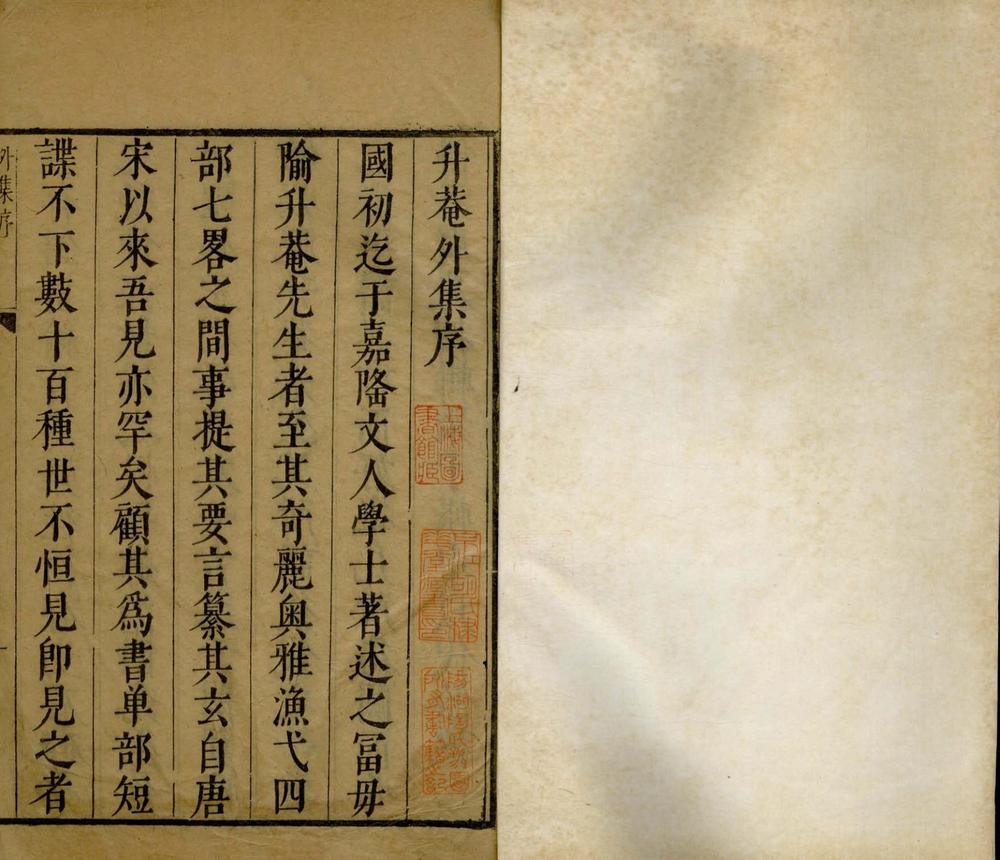 升菴外集序
國初迄于嘉隆文人學士著述之冨毋
隃升菴先生者至其奇麗奥雅漁弋四
部七畧之間事提其要言纂其玄自唐
宋以來吾見亦罕矣顧其爲書单部短
諜不下數十百種世不恒見卽見之者
外集序
上海圖書館藏